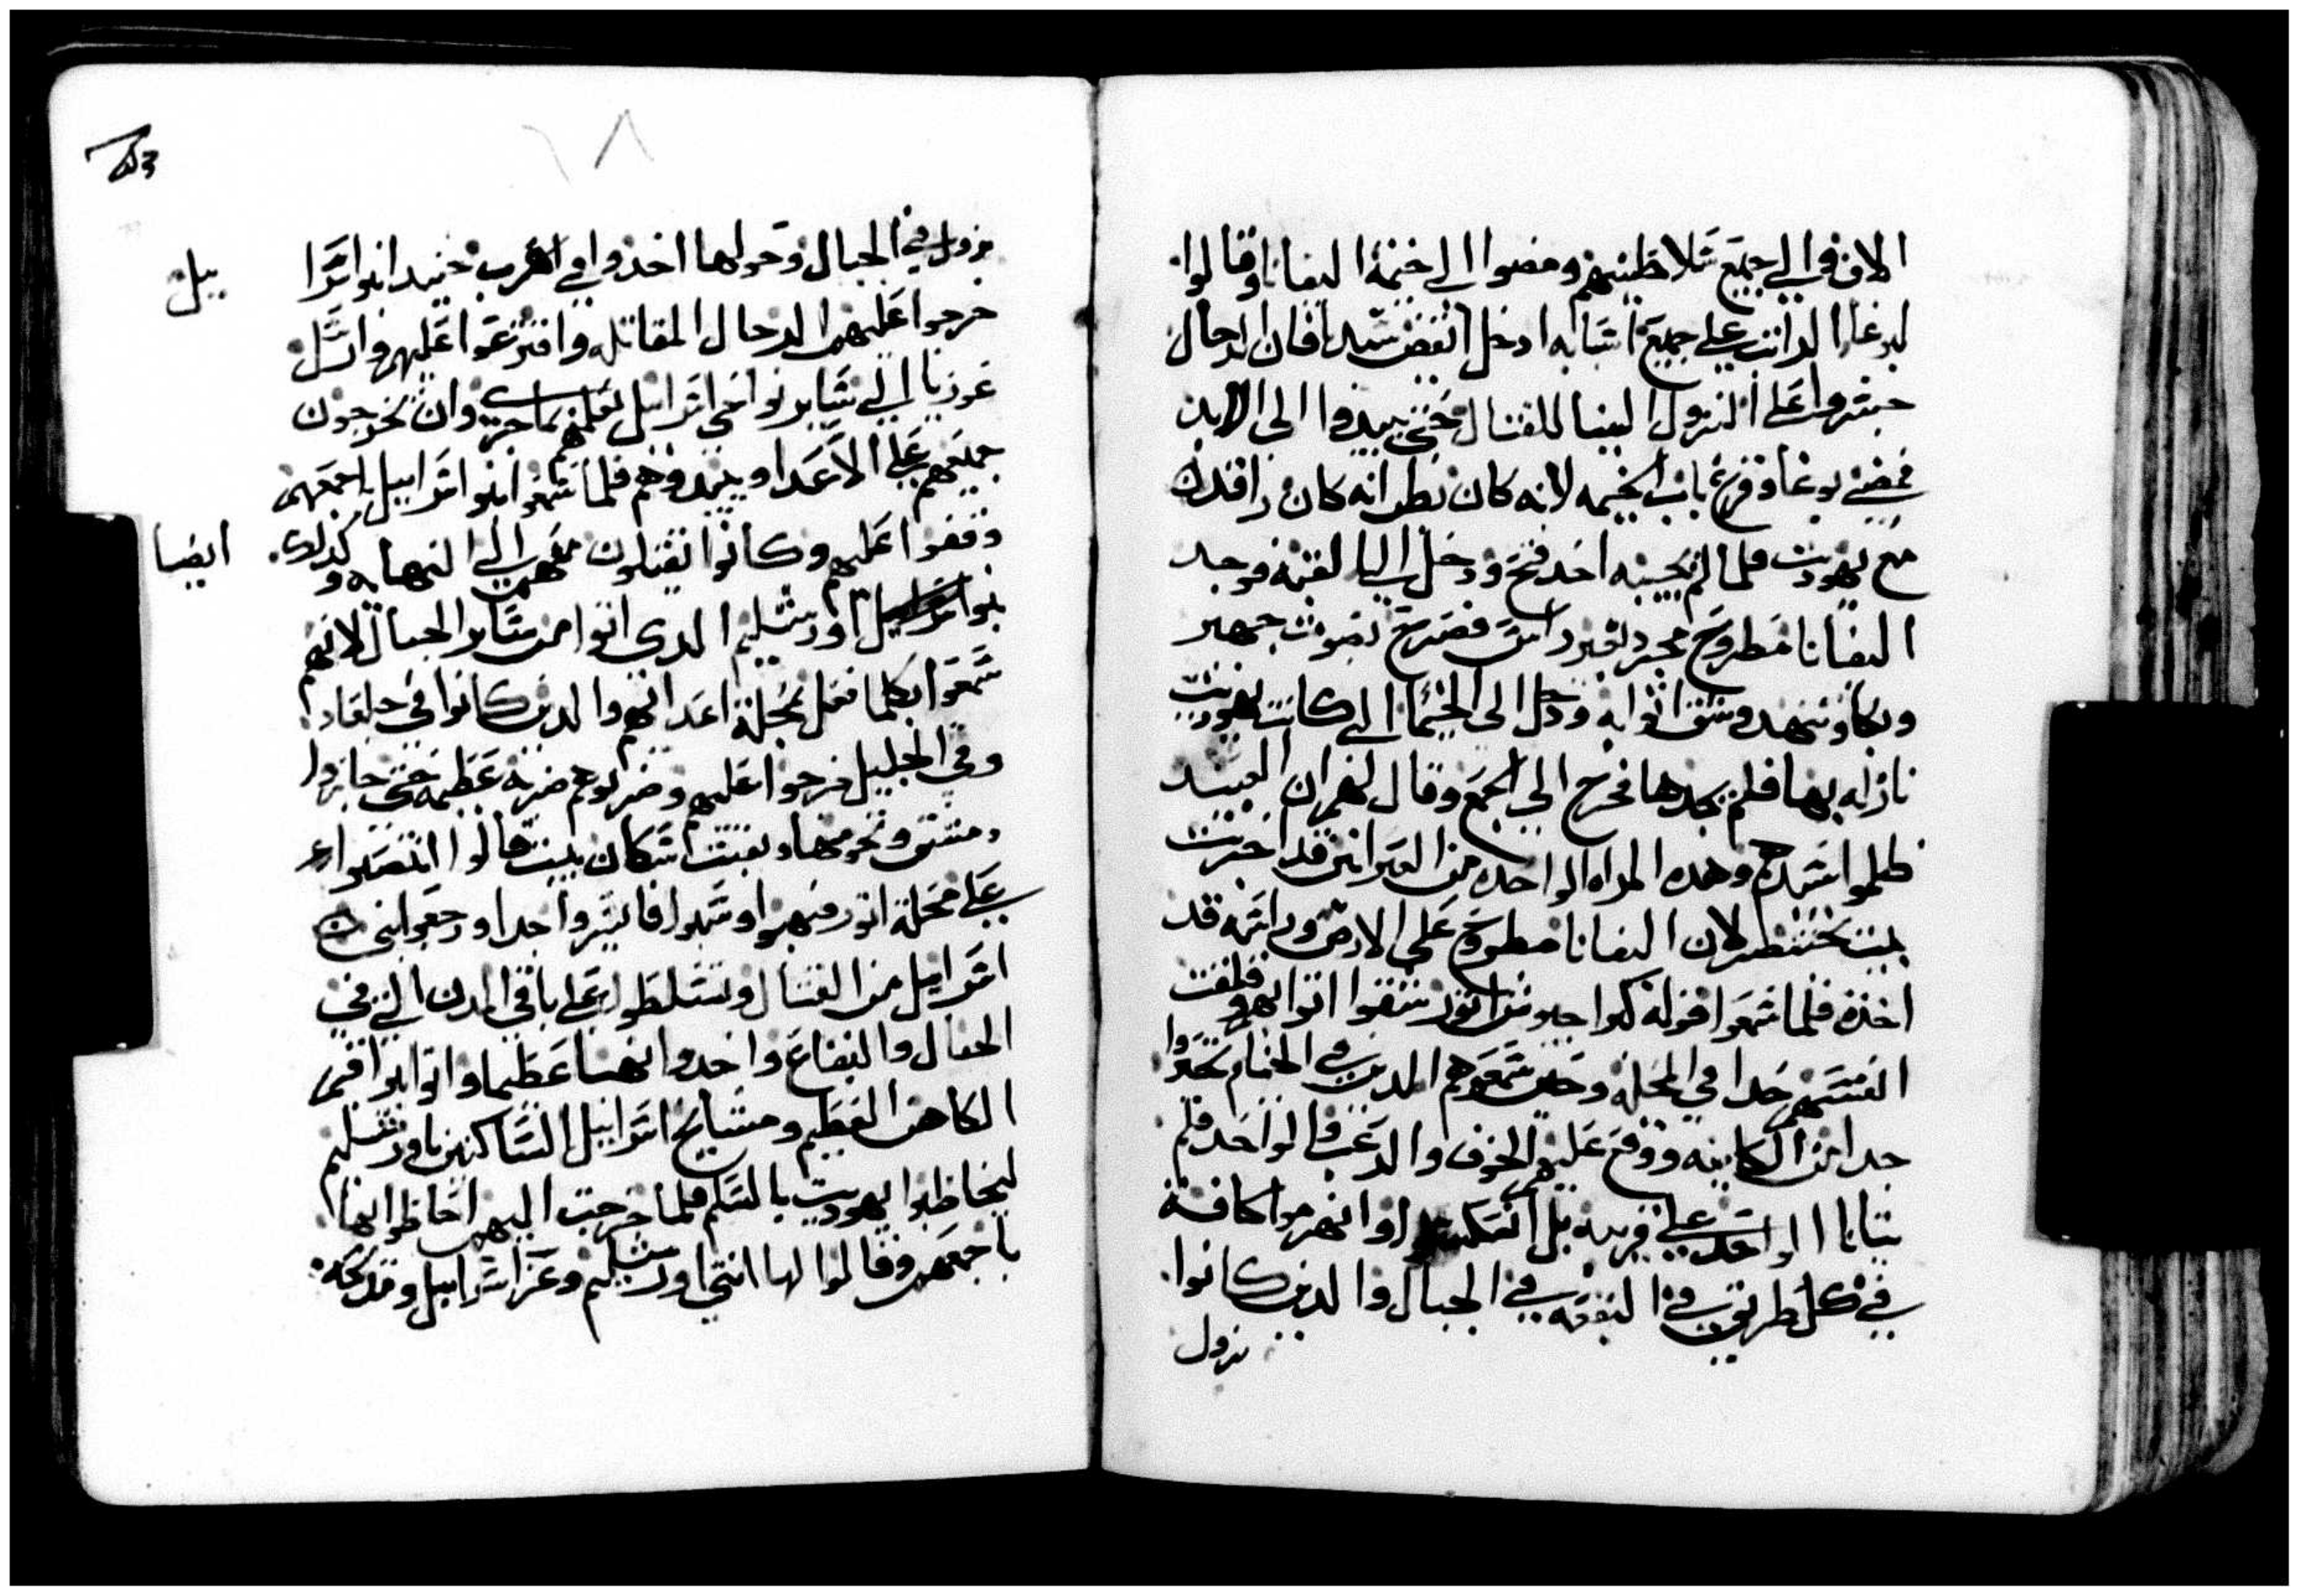 الالوف والي جميع سلاطينهم ومضوا الي خيمة اليفانا وقالوا
لبوغا الدانت علي جميع اشيايه ادخل انهض سيدنا فان الرجال
جسروا علي النزول الينا للقتال حتي يبيدوا الي الابد
فمضي بوغا وقرع باب الخيمه لانه كان يظن انه كان راقد
مع يهوديت فلما لم يجيبه احد فتح ودخل الي القبة فوجد
اليفانا مطروح مجرد بغير راس فصرخ بصوت جهير
وبكا وتنهد وشق اثوابه ودخل الي الخيمة التي كانت يهوديت
نازله بها فلم يجدها فخرج الي الجمع وقال لهم ان العبيد
ظلموا سيدهم وهده المراه الواحده من العبرانين قد اخزت
بيت بختنصر لان اليفانا مطروح علي الارض وراسه قد
اخذه فلما سمعوا قوله كبرا جيوش اتور شقوا اثوابهم وقلقت
انفسهم جدا في المحله وحين سمعوهم الدين في الخيام تحيروا
جدا من الكاينه ووقع عليهم الخوف والرعب قالوا احد فلم
يتانا الواحد علي قريبه بل انسكبوا وانهزموا كافة
في كل طريق في البقعه في الجبال والدين كانوا
نزول
نزول في الجبال وحولها اخذوا في الهرب حينيد بنوا اسرا
ييل
خرجوا عليهم الرجال المقاتله وافترعوا عليهم وارسل
عوزيا الي ساير نواحي اسراييل يعلمهم بما جري وان يخرجون
جميعهم علي الاعدا ويبيدوهم فلما سمعوا بنوا اسراييل اجمعهم
وقفوا عليهم وكانوا يقتلون فيهم الي النهايه وكدلك
ايضا
بنوا اورشليم الدي اتوا من ساير الجبال لانهم
سمعوا بكلما فعل بمحلة اعدايهم والدين كانوا في جلعاد
وفي الجليل خرجوا عليهم وضربوهم ضربة عظيمه حتي جازوا
دمشق ونحومها وبقيت سكان بيت فالوا انتصروا
علي محلة اتور فنهبوا وسبوا فايسروا جدا ورجعوا بني
اسراييل من القتال وتسلطوا علي باقي المدن التي في
الجبال والبقاع واخدوا نهبا عظيما واتوا يواقيم
الكاهن العظيم ومشايخ اسراييل الساكنين باورشليم
ليخاطبوا يهوديت بالسلم فلما خرجت اليهم احاطوا بها
باجمعهم وقالوا لها انتي اورشليم وعز اسراييل